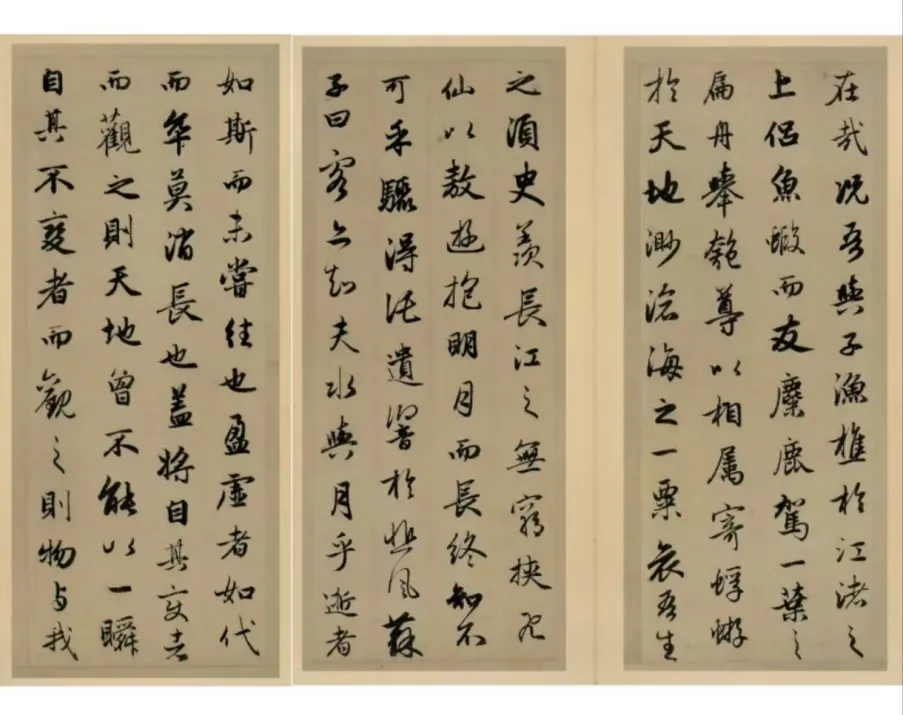 在哉况吾與子漁樵於江渚之
上侣魚蝦而友麋鹿駕一葉之
扁舟舉匏尊以相属寄蜉蝣
於天地渺滄海之一粟哀吾生
之須臾羨長江之無窮挾飛
仙以敖遊抱明月而長終知不
可乎驟得託遺響於悲風蘇
子曰客亦知夫水與月乎逝者
如斯而未嘗往也盈虛者如代
而卒莫消長也蓋將自其变者
而觀之則天地曾不能以一瞬
自其不變者而觀之則物与我